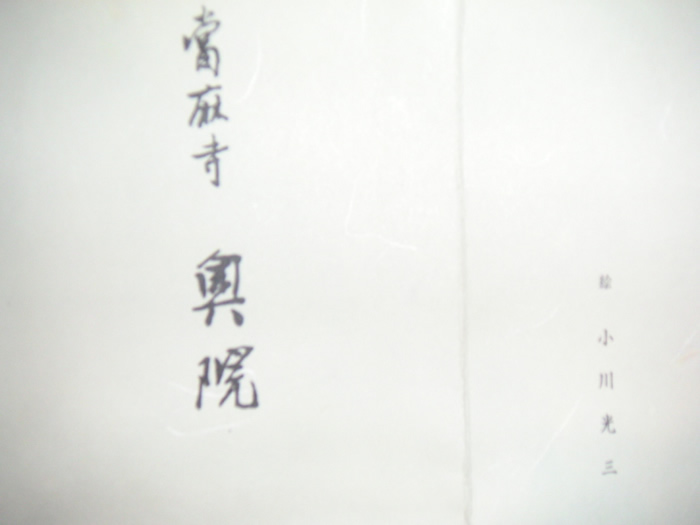 絵 小川光三
當麻寺 奥院